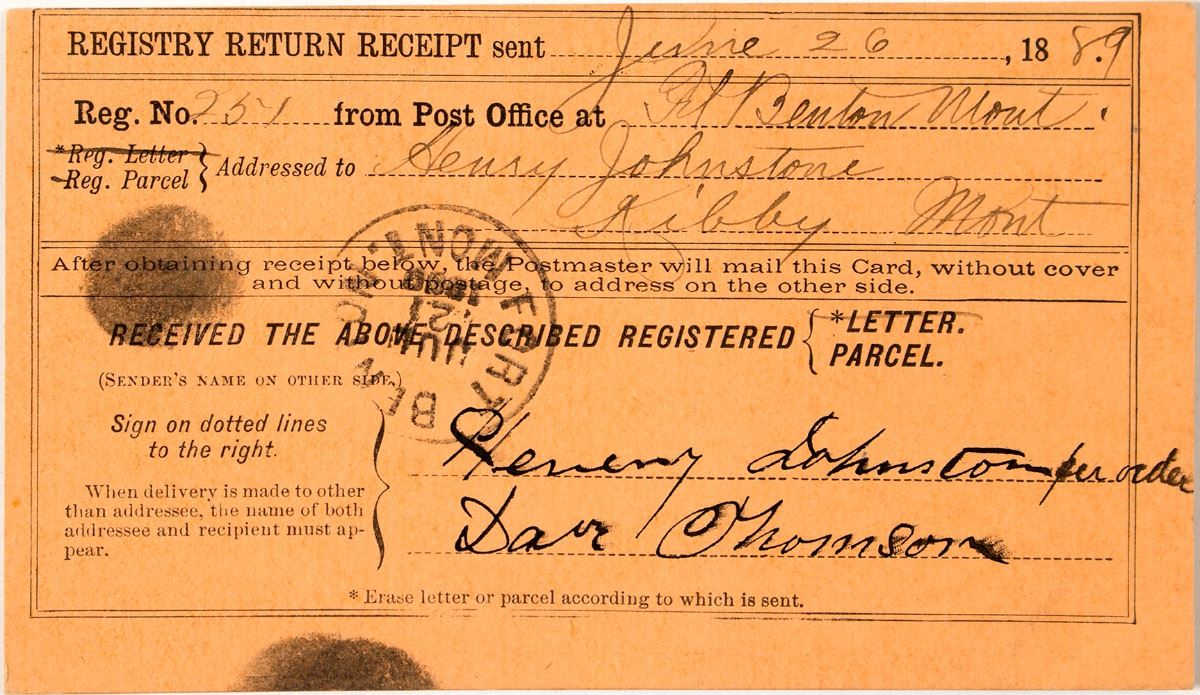 REGISTRY RETURN RECEIPT sent June 26, 1889
Reg. No. 251 from Post Office at Ft Benton Mont.
*Reg. Letter
Reg. Parcel } Addressed to Henry Johnstone
Kibby Mont
After obtaining receipt below, the Postmaster will mail this Card, without cover
and without postage, to address on the other side.
RECEIVED THE ABOVE DESCRIBED REGISTERED { *LETTER.
PARCEL.
(SENDER'S NAME ON OTHER SIDE.)
Sign on dotted lines
to the right.
When delivery is made to other
than addressee, the name of both
addressee and recipient must ap-
pear.
Henery Johnston per order
Dave Thomson
* Erase letter or parcel according to which is sent.
FORT BENTON MONT.